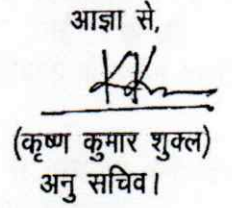 आज्ञा से,
(कृष्ण कुमार शुक्ल)
अनु सचिव।